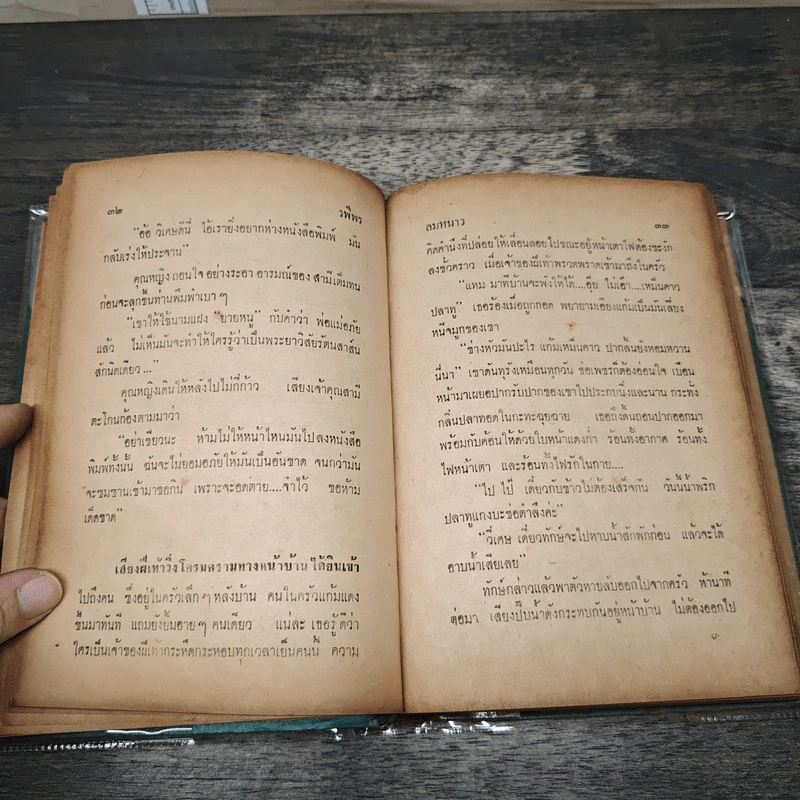 ๓๒ รพีพร
"อ้อ วิเศษดีนี่ ไอ้เรายิ่งอยากห่างหนังสือพิมพ์ มัน
กลับเร่งให้ประจาน"
คุณหญิงถอนใจอย่างระอา อารมณ์ของสามีเต็มทน
ก่อนจะลุกขึ้นท่านพึมพำเบา ๆ
"เขาให้ใช้นามแฝง "ยายหนู" กับคำว่า พ่อแม่อภัย
แล้ว ไม่เห็นมันจะทำให้ใครรู้ว่าเป็นพระยาวิสัยรัตนสาส์น
สักนิดเดียว..."
คุณหญิงเดินให้หลังไปไม่กี่ก้าว เสียงเจ้าคุณสามี
ตะโกนก้องตามมาว่า
"อย่าเชียวนะ ห้ามไม่ให้หน้าไหนมันไปลงหนังสือ
พิมพ์ทั้งนั้น ฉันจะไม่ยอมอภัยให้มันเป็นอันขาด จนกว่ามัน
จะซมซานเข้ามาขอกิน เพราะจะอดตาย....จำไว้ ขอห้าม
เด็ดขาด"
เสียงฝีเท้าวิ่งโครมครามทางหน้าบ้าน ได้ยินเข้า
ไปถึงคน ซึ่งอยู่ในครัวเล็ก ๆ หลังบ้าน คนในครัวแก้มแดง
ขึ้นมาทันที แถมยังยิ้มอาย ๆ คนเดียว แน่ละ เธอรู้ดีว่า
ใครเป็นเจ้าของฝีเท้ากระหืดกระหอบทุกเวลาเย็นคนนี้ ความ
ลมหนาว ๓๓
คิดคำนึงที่ปล่อยให้เลื่อนลอยไปขณะอยู่หน้าเตาไฟต้องชะงัก
ลงชั่วคราว เมื่อเจ้าของฝีเท้าพรวดพราดเข้ามาถึงในครัว
"แหม มาทีบ้านจะพังให้ได้....อุ๊ย ไม่เอา....เหม็นคาว
ปลาทู" เธอร้องเมื่อถูกกอด พยายามเอียงแก้มเป็นมันเลี่ยง
หนีจมูกของเขา
"ช่างหัวมันปะไร แก้มเหม็นคาว ปากลิ้นยังหอมหวาน
นี่นา" เขาดันทุรังเหมือนทุกวัน ช่อเพชรก็ต้องอ่อนใจ เบือน
หน้ามาเผยอปากรับปากของเขาไปประกบนิ่งและนาน กระทั่ง
กลิ่นปลาทอดในกะทะฉุยฉาย เธอถึงดิ้นถอนปากออกมา
พร้อมกับค้อนให้ด้วยใบหน้าแดงก่ำ ร้อนทั้งอากาศ ร้อนทั้ง
ไฟหน้าเตา และร้อนทั้งไฟรักในกาย....
"ไป ไป๊ เดี๋ยวกับข้าวไม่ต้องเสร็จกัน วันนี้น้ำพริก
ปลาทูแกงบะช่อตำลึงค่ะ"
"วิเศษ เดี๋ยวทักษ์จะไปหาบน้ำสักพักก่อน แล้วจะได้
อาบน้ำเสียเลย"
ทักษ์กล่าวแล้วพาตัวหายลับออกไปจากครัว ห้านาที
ต่อมา เสียงปี๊บน้ำดังกระทบกันอยู่หน้าบ้าน ไม่ต้องออกไป